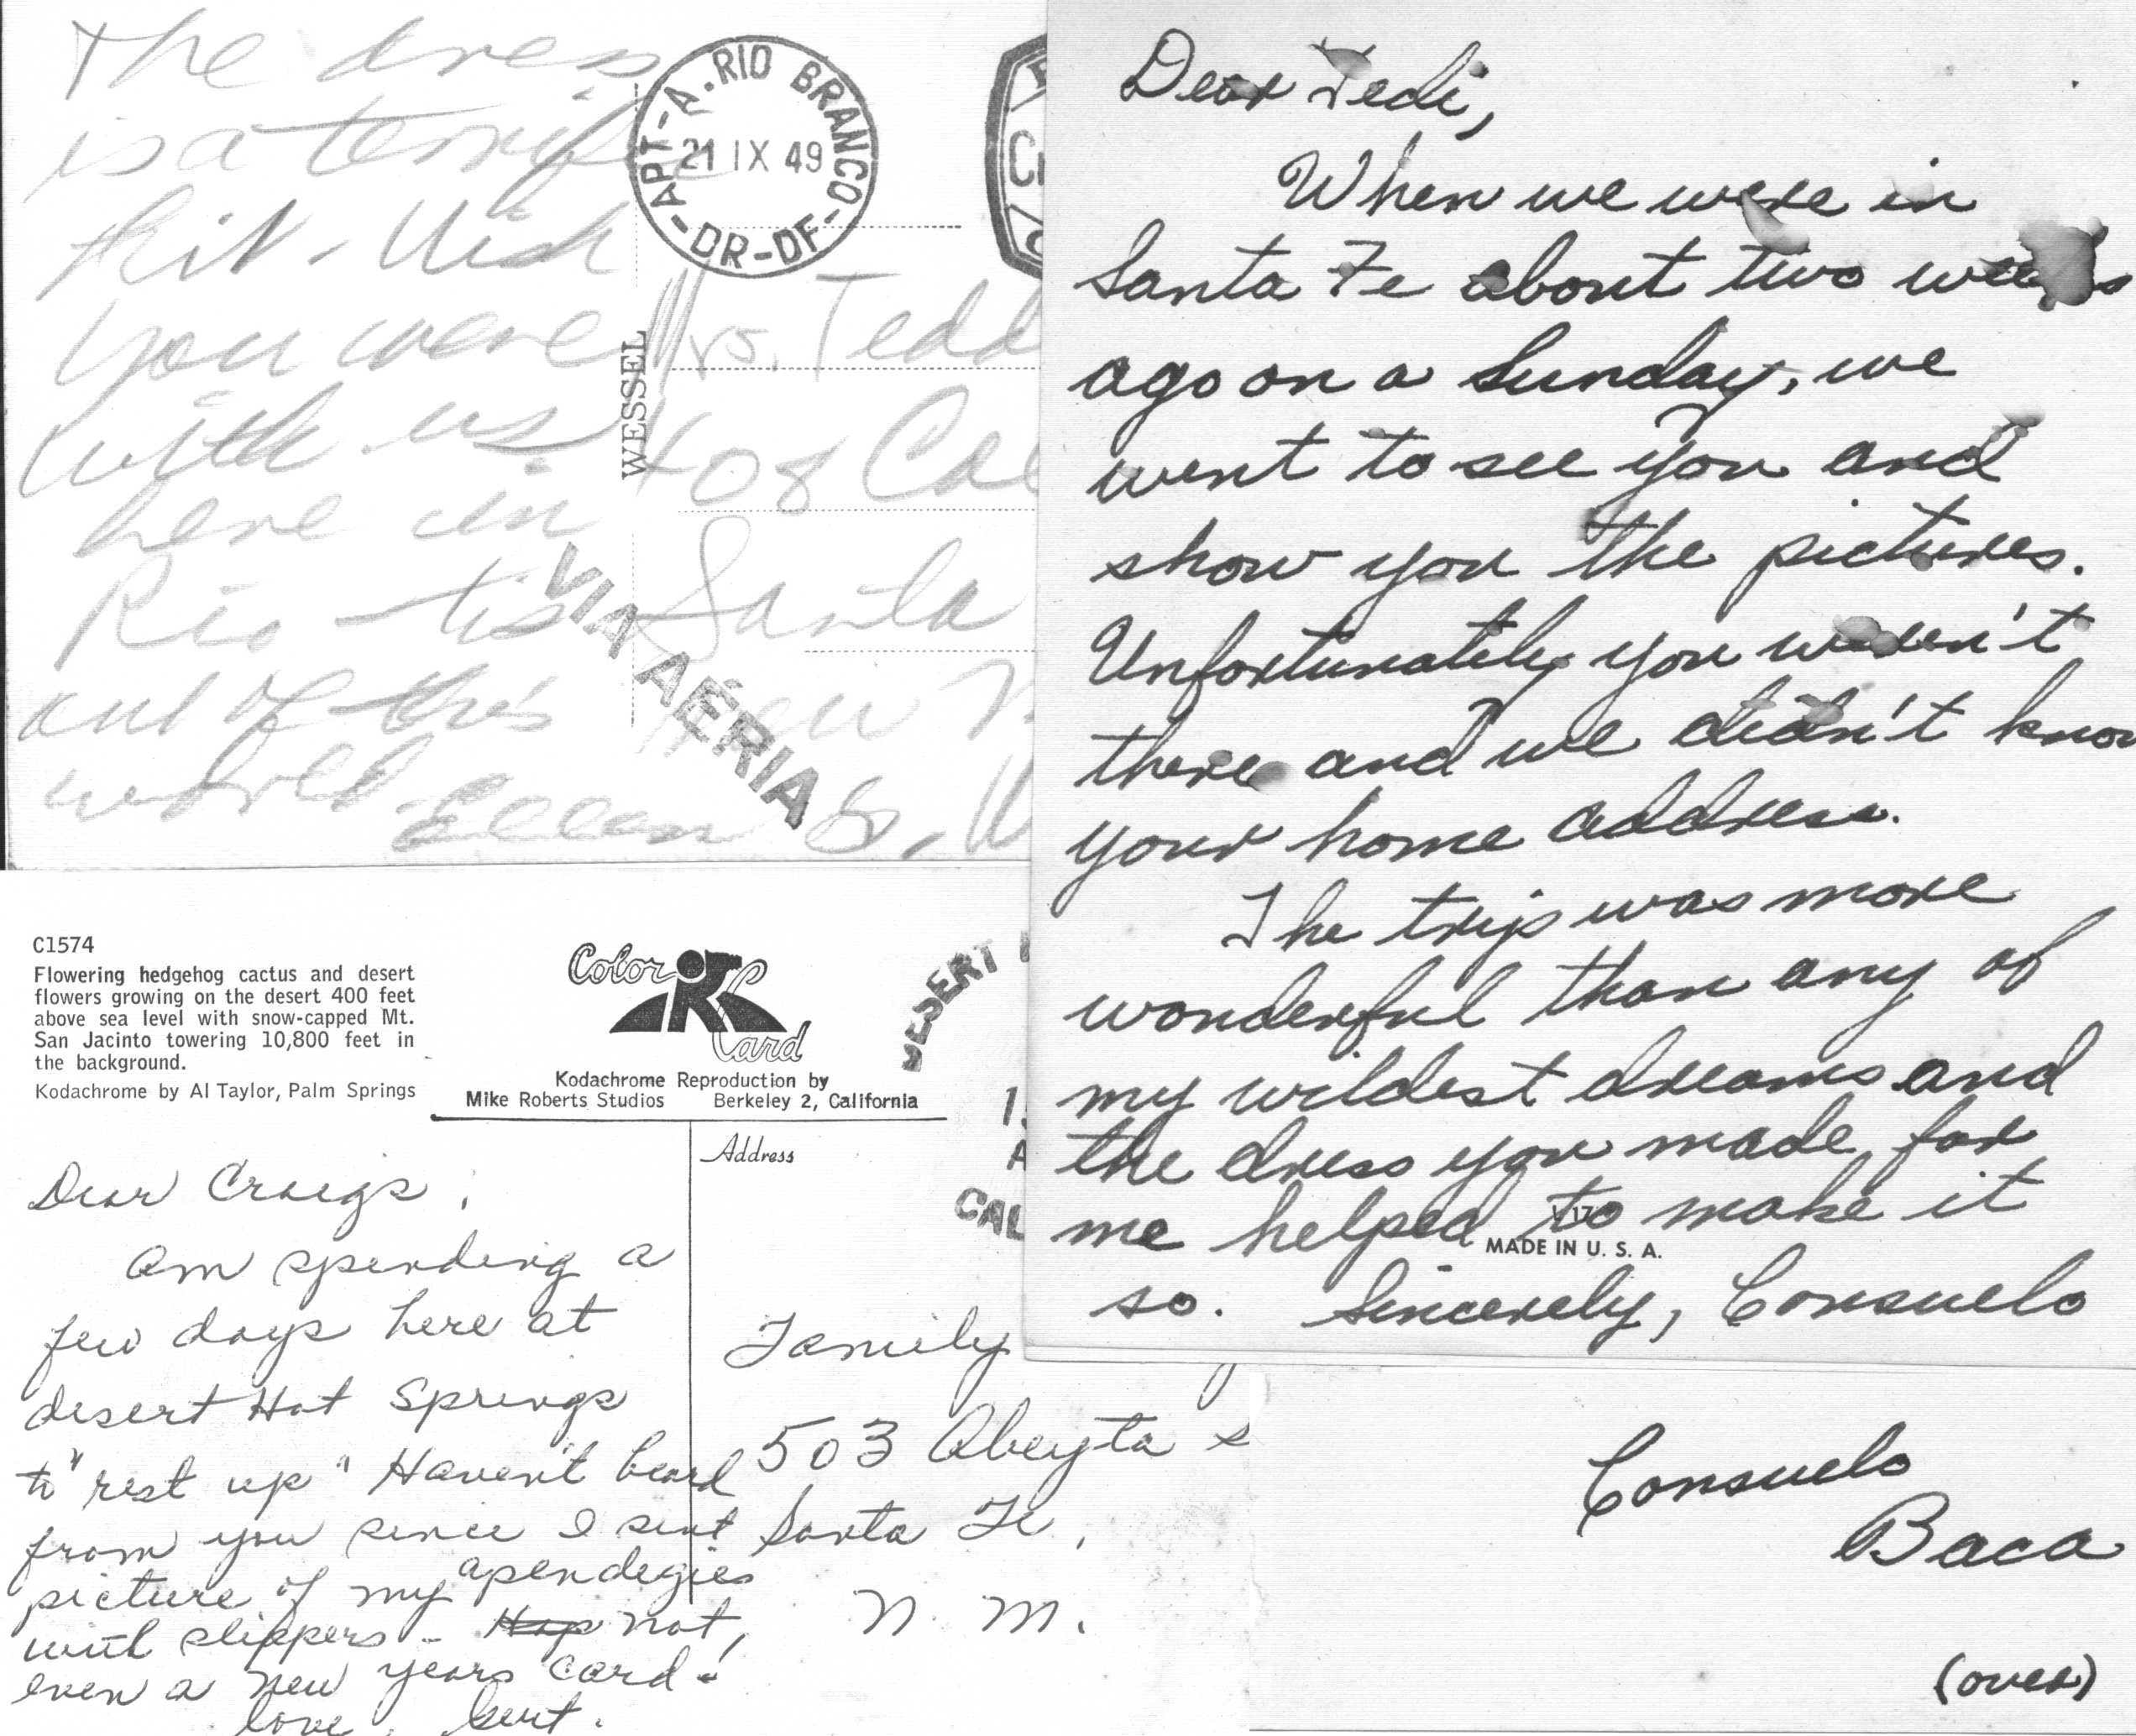 The dress
is a terrific
hit. Wish
you were
with us
here in
Rio - tis
out of this
world.
Ellen
APT-A. RIO BRANCO-
21 IX 49
-DR-DF-
WESSEL
Mrs. Tedd
408 Ca
Santa
New
VIA AÉRIA
Dear Tedi,
When we were in
Santa Fe about two weeks
ago on a Sunday, we
went to see you and
show you the pictures.
Unfortunately you weren't
there and we didn't know
your home address.
The trip was more
wonderful than any of
my wildest dreams and
the dress you made for
me helped to make it
MADE IN U. S. A.
so. Sincerely, Consuelo
Consuelo
Baca
(over)
C1574
Flowering hedgehog cactus and desert
flowers growing on the desert 400 feet
above sea level with snow-capped Mt.
San Jacinto towering 10,800 feet in
the background.
Kodachrome by Al Taylor, Palm Springs
Color Card
Kodachrome Reproduction by
Mike Roberts Studios Berkeley 2, California
Address
DESERT
CAL
Dear Craigs,
Am spending a
few days here at
desert Hot Springs
to "rest up" Haven't heard
from you since I sent
picture of my apendegies
with slippers - not,
even a New Years card!
love, Gert.
Family
503 Abeyta s
Santa Fe,
N. M.